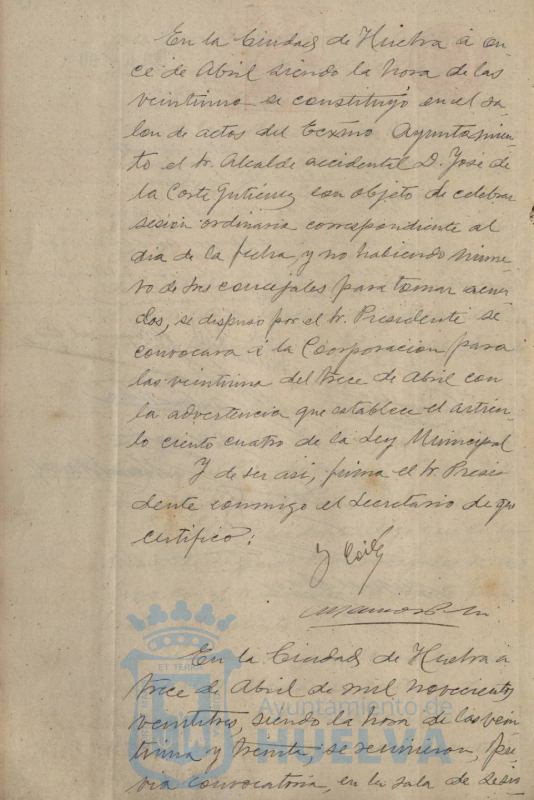 En la Ciudad de Huelva á on-
ce de Abril siendo la hora de las
veintiuna se constituyó en el sa-
lon de actos del Excmo Ayuntamien-
to el Sr. Alcalde accidental D. José de
la Corte Gutiérrez con objeto de celebrar
sesion ordinaria correspondiente al
dia de la fecha, y no habiendo núme-
ro de Sres concejales para tomar acuer-
dos, se dispuso por el Sr. Presidente se
convocara á la Corporacion para
las veintiuna del trece de Abril con
la advertencia que establece el artícu-
lo ciento cuatro de la Ley Municipal
Y de ser asi, firma el Sr. Presi-
dente conmigo el Secretario de que
certifico:
En la Ciudad de Huelva á
trece de Abril de mil novecientos
veintitres, siendo la hora de las vein-
tiuna y treinta, se reunieron, pre-
via convocatoria, en la sala de sesio-
ET TERRAE
Ayuntamiento de
HUELVA